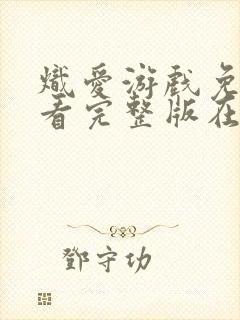 熾愛游戲免
看完整版在
鄧守功